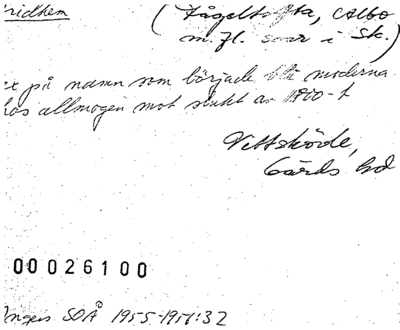 ridhem
(Fågeltofta, Albo
m.fl. snar i Sk.)
ex på namn som började bli moderna
hos allmogen mot slutet av 1800-t
Vittskövle,
Gärds hd
00026100
Ingers SOÅ 1955-1956:32